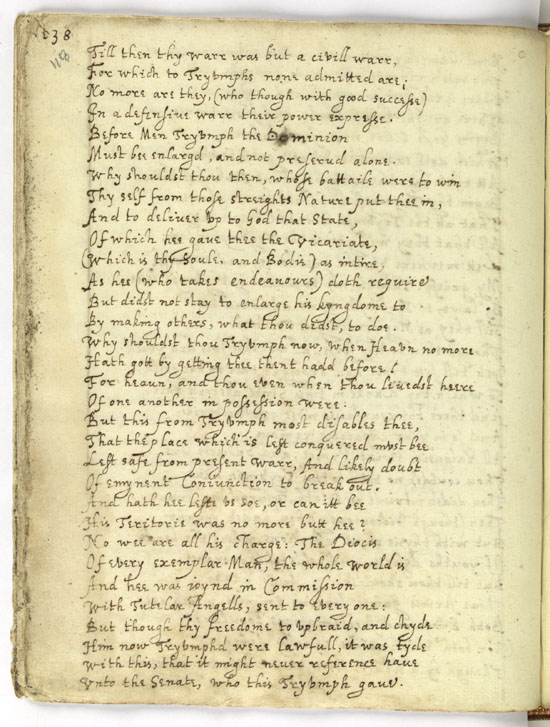 138
118
Till then thy warr was but a civill warr,
For which to Tryvmphs none admitted are;
No more are they, (who though with good successe)
In a defensive warr their power expresse.
Before Men Tryvmph the Dominion
Must bee enlargd, and not preserud alone.
Why shouldst thou then, whose battaile were to win
Thy self from those streights Nature put thee in,
And to deliver vp to God that State,
Of which hee gave thee the Vicariate,
(Which is thy Soule, and Bodie) as intire,
As hee (who takes endeavours) doth require
But didst not stay to enlarge his kyngdome to
By making others, what thou didst, to doe.
Why shouldst thou Tryvmph now, when Heavn no more
Hath gott by getting thee then't hadd before!
For heaun, and thou even when thou liuedst heere
Of one another in possession were.
But this from Tryvmph most disables thee,
That the place which is left conquered mvst bee
Left safe from present warr, And likely doubt
Of emynent Coniunction to break out.
And hath hee lefte vs soe, or can itt bee
His Teritorie was no more butt hee?
No wee are all his charge: The Diocis
Of every exemplar Man, the whole world is
And hee was ioynd in Commission
With Tutelar Angells, sent to every one:
But though thy freedome to vpbraid, and chyde
Him now Tryvmphd were lawfull, it was tyde
With this, that it might never reference have
Vnto the Senate, who this Tryvmph gave.